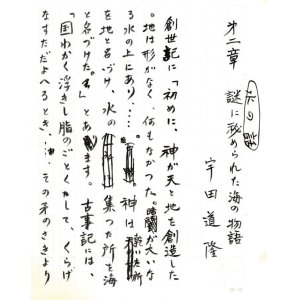 第二章 謎に秘められた海の物語
宇田道隆
創世記に「初めに、神が天と地を創造した
。地は形がなく、何もなかった。暗闇が大いな
る水の上にあり、…。神は
を地と名づけ、水の 集つた所を海
と名づけた。」とあります。古事記には、
「国わかく浮きし脂のごとくして、くらげ
なすただよへるとき、…その矛のさきより